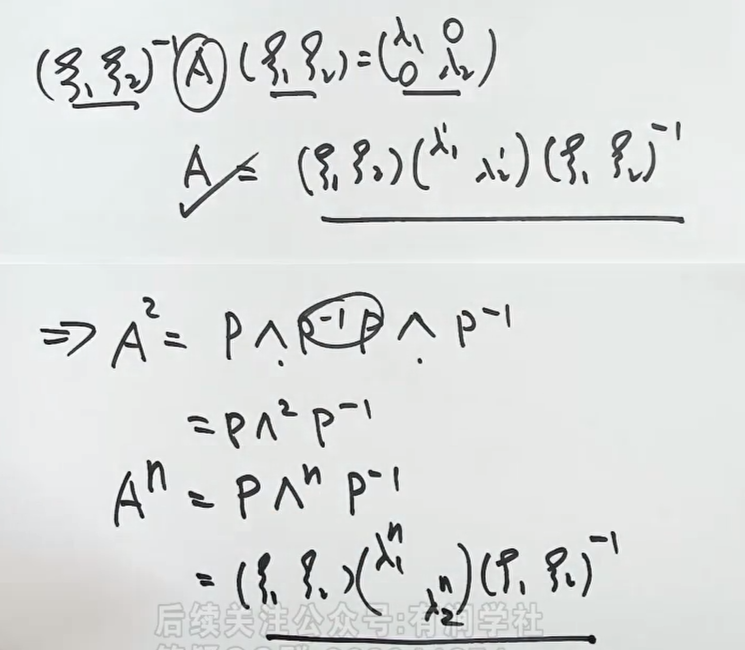 (ξ₁ ξ₂)⁻¹ A (ξ₁ ξ₂) = (λ₁ 0
0 λ₂)
A = (ξ₁ ξ₂)(λ₁ λ₂)(ξ₁ ξ₂)⁻¹
⇒ A² = P Λ P⁻¹ P Λ P⁻¹
= P Λ² P⁻¹
Aⁿ = P Λⁿ P⁻¹
= (ξ₁ ξ₂)(λ₁ⁿ λ₂ⁿ)(ξ₁ ξ₂)⁻¹
后续关注公众号:有润学社